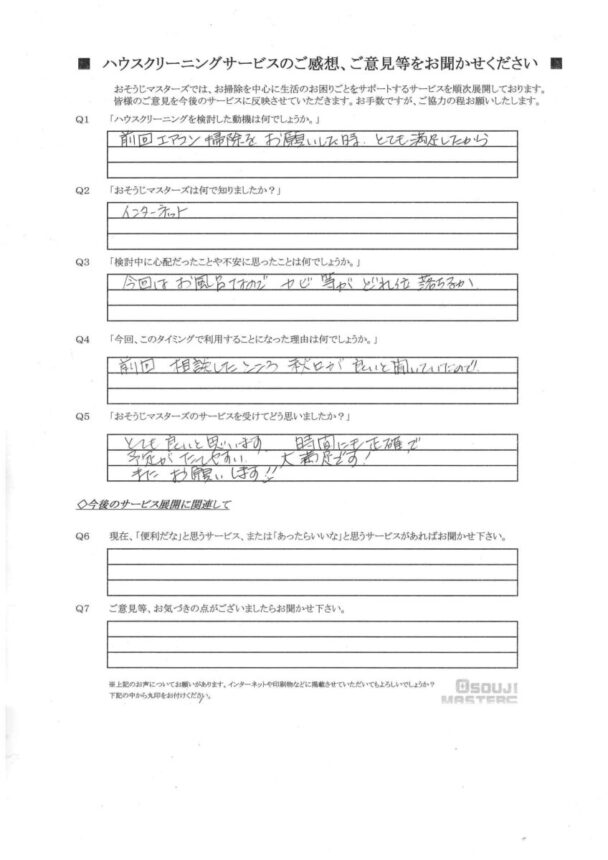 ■ ハウスクリーニングサービスのご感想、ご意見等をお聞かせください ■
おそうじマスターズでは、お掃除を中心に生活のお困りごとをサポートするサービスを順次展開しております。
皆様のご意見を今後のサービスに反映させていただきます。お手数ですが、ご協力の程お願いしたします。
Q1 「ハウスクリーニングを検討した動機は何でしょうか。」
前回エアコン掃除をお願いした時、とても満足したから
Q2 「おそうじマスターズは何で知りましたか？」
インターネット
Q3 「検討中に心配だったことや不安に思ったことは何でしょうか。」
今回はお風呂なのでカビ等がどれ位落ちるか
Q4 「今回、このタイミングで利用することになった理由は何でしょうか。」
前回 相談したところ 秋口が良いと聞いていたので
Q5 「おそうじマスターズのサービスを受けてどう思いましたか？」
とても良いと思います 時間にも正確で
予定がたてやすい 大満足です！
また お願いします!!
◇今後のサービス展開に関連して
Q6 現在、「便利だな」と思うサービス、または「あったらいいな」と思うサービスがあればお聞かせ下さい。
Q7 ご意見等、お気づきの点がございましたらお聞かせ下さい。
※上記のお声についてお願いがあります。インターネットや印刷物などに掲載させていただいてもよろしいでしょうか？
下記の中から丸印をお付けください。
OSOUJI
MASTERS